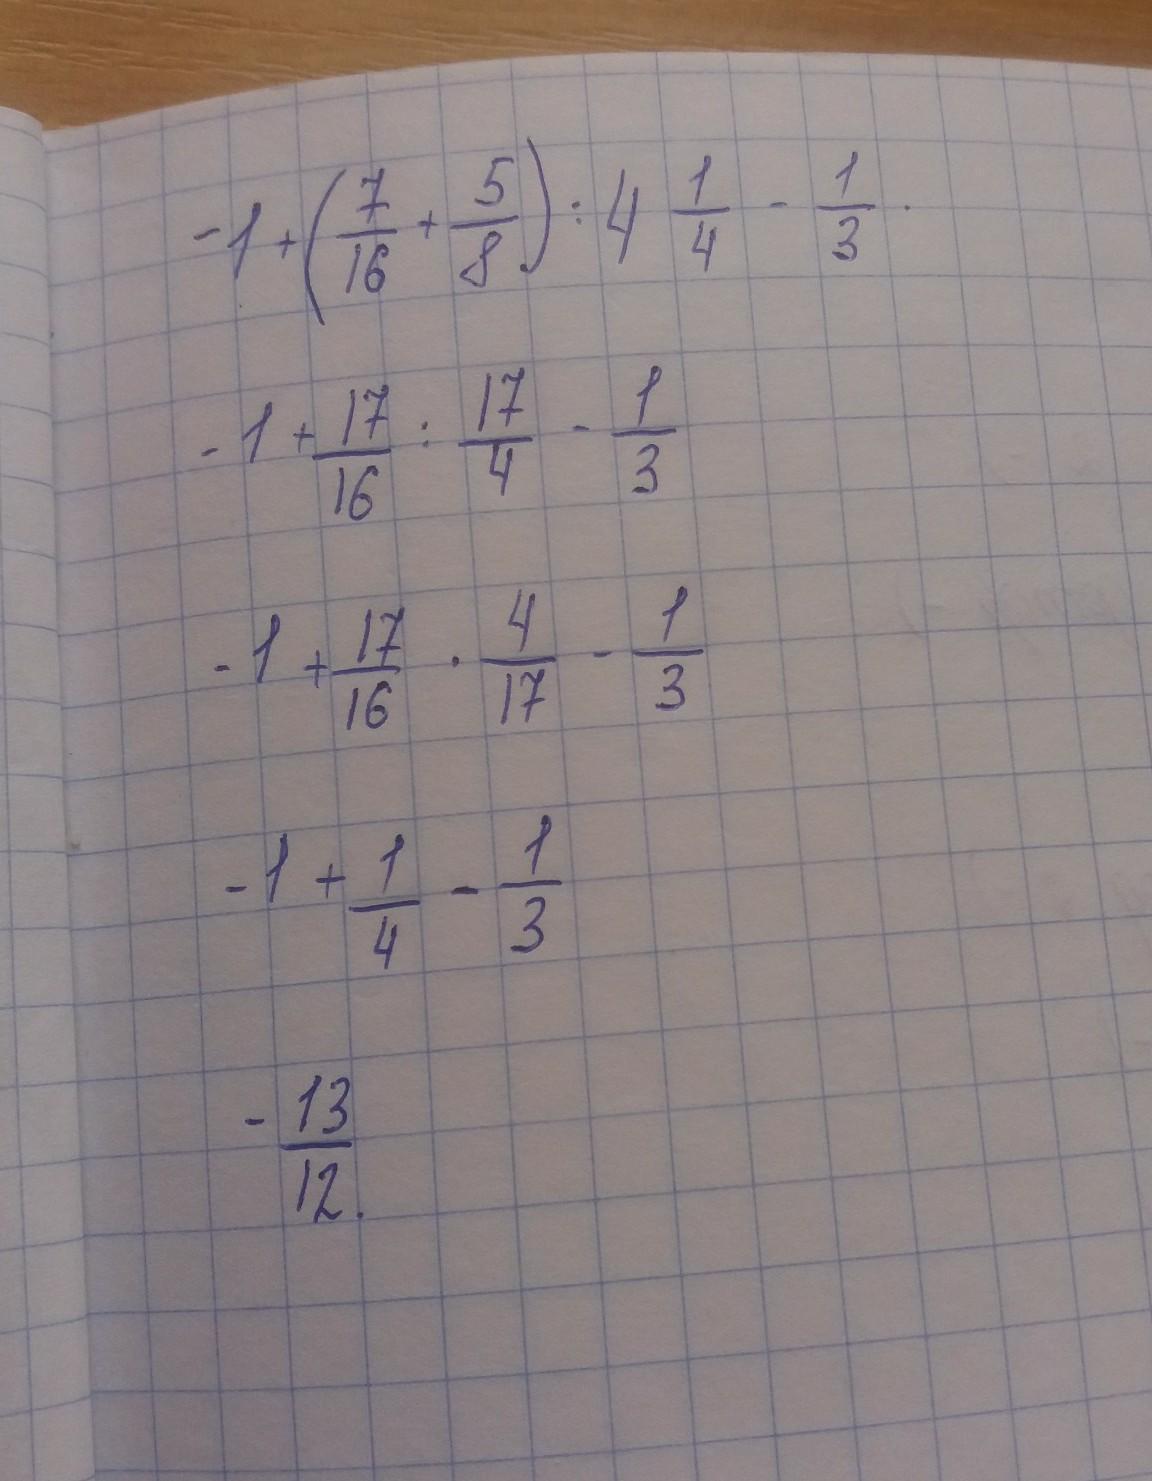 -1+(7/16+5/8):4 1/4-1/3.
-1+17/16:17/4-1/3
-1+17/16·4/17-1/3
-1+1/4-1/3
-13/12.